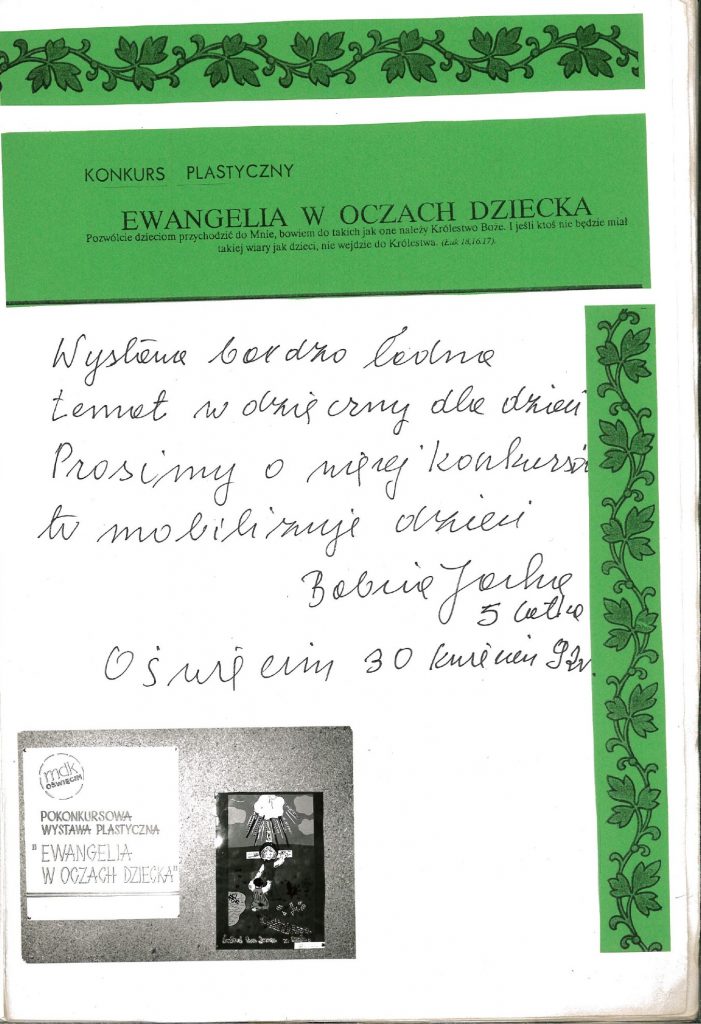 KONKURS PLASTYCZNY
EWANGELIA W OCZACH DZIECKA
Pozwólcie dzieciom przychodzić do Mnie, bowiem do takich jak one należy Królestwo Boże. I jeśli ktoś nie będzie miał
takiej wiary jak dzieci, nie wejdzie do Królestwa. (Łuk 18,16.17).
Wystawa bardzo ładna
temat wdzięczny dla dzieci
Prosimy o więcej konkursów
to mobilizuje dzieci
Babcia Jacka
5 latka
Oświęcim 30 kwiecień 92r.
mdk
OŚWIĘCIM
POKONKURSOWA
WYSTAWA PLASTYCZNA
"EWANGELIA
W OCZACH DZIECKA"